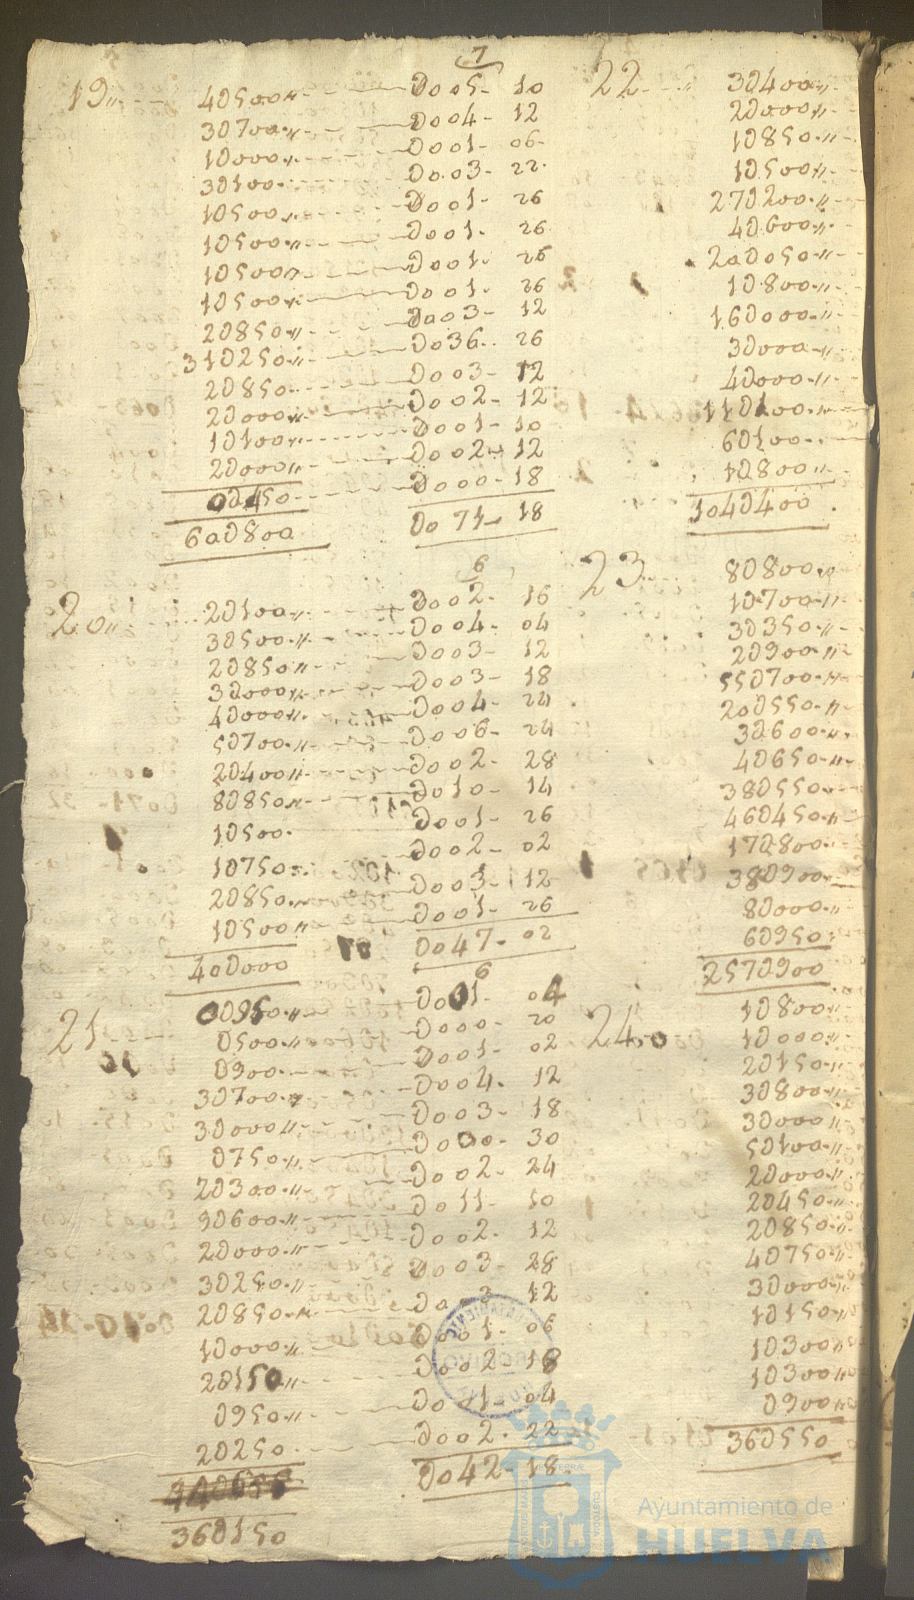 7
19,, 40500,, 0005- 10
30700,, 0004- 12
10000,, 0001- 06-
30100. 0003- 22-
10500,, 0001- 26
10500,, 0001- 26
10500,, 0001- 26
10500,, 0001- 26
20850,, 0003- 12
310250,, 0036.. 26
20850 0003- 12
20000,, 0002- 12
10100,, 0001- 10
20000,, 0002- 12
00450 0000- 18
600800 0071- 18
6
20,, 20100,, 0002- 16
30500,, 0004- 04
20850,, 0003- 12
30000,, 0003- 18
40000,, 0004- 24
50700,, 0006- 24
20400,, 0002- 28
80850,, 0010- 14
10500. 0001- 26
10750 0002- 02
20850,, 0003- 12
10500,, 0001- 26
400000 0047- 02
6
21 0950,, 0001- 04
0500,, 0000- 20
0900 0001- 02
30700,, 0004- 12
30000,, 0003- 18
0750,, 0000- 30
20300,, 0002- 24
90600,, 0011- 10
20000,, 0002- 12
30250,, 0003- 28
20850,, 0003- 12
10000,, 0001- 06
20150,, 0002- 18
0950,, 0001- 04
20250 0002- 22
360150 0042- 18
22 30400,,
20000,,
10850,,
10500,,
270200,,
40600,,
200050,,
10800,,
160000,,
30000,,
40000,,
110100,,
60100
10800,,
1040400
23 80800,,
10700,,
30350,,
20900,,
550700,,
200550,,
30600,,
40650,,
380550,,
460450,,
170800,,
380900
80000,,
60950
2570900
24 10800,,
10000,,
20150,,
30800,,
30000,,
50100,,
20000,,
20450,,
20850,,
40750,,
30000,,
10150,,
10300,,
10300,,
0900,,
360550
Ayuntamiento de
HUELVA